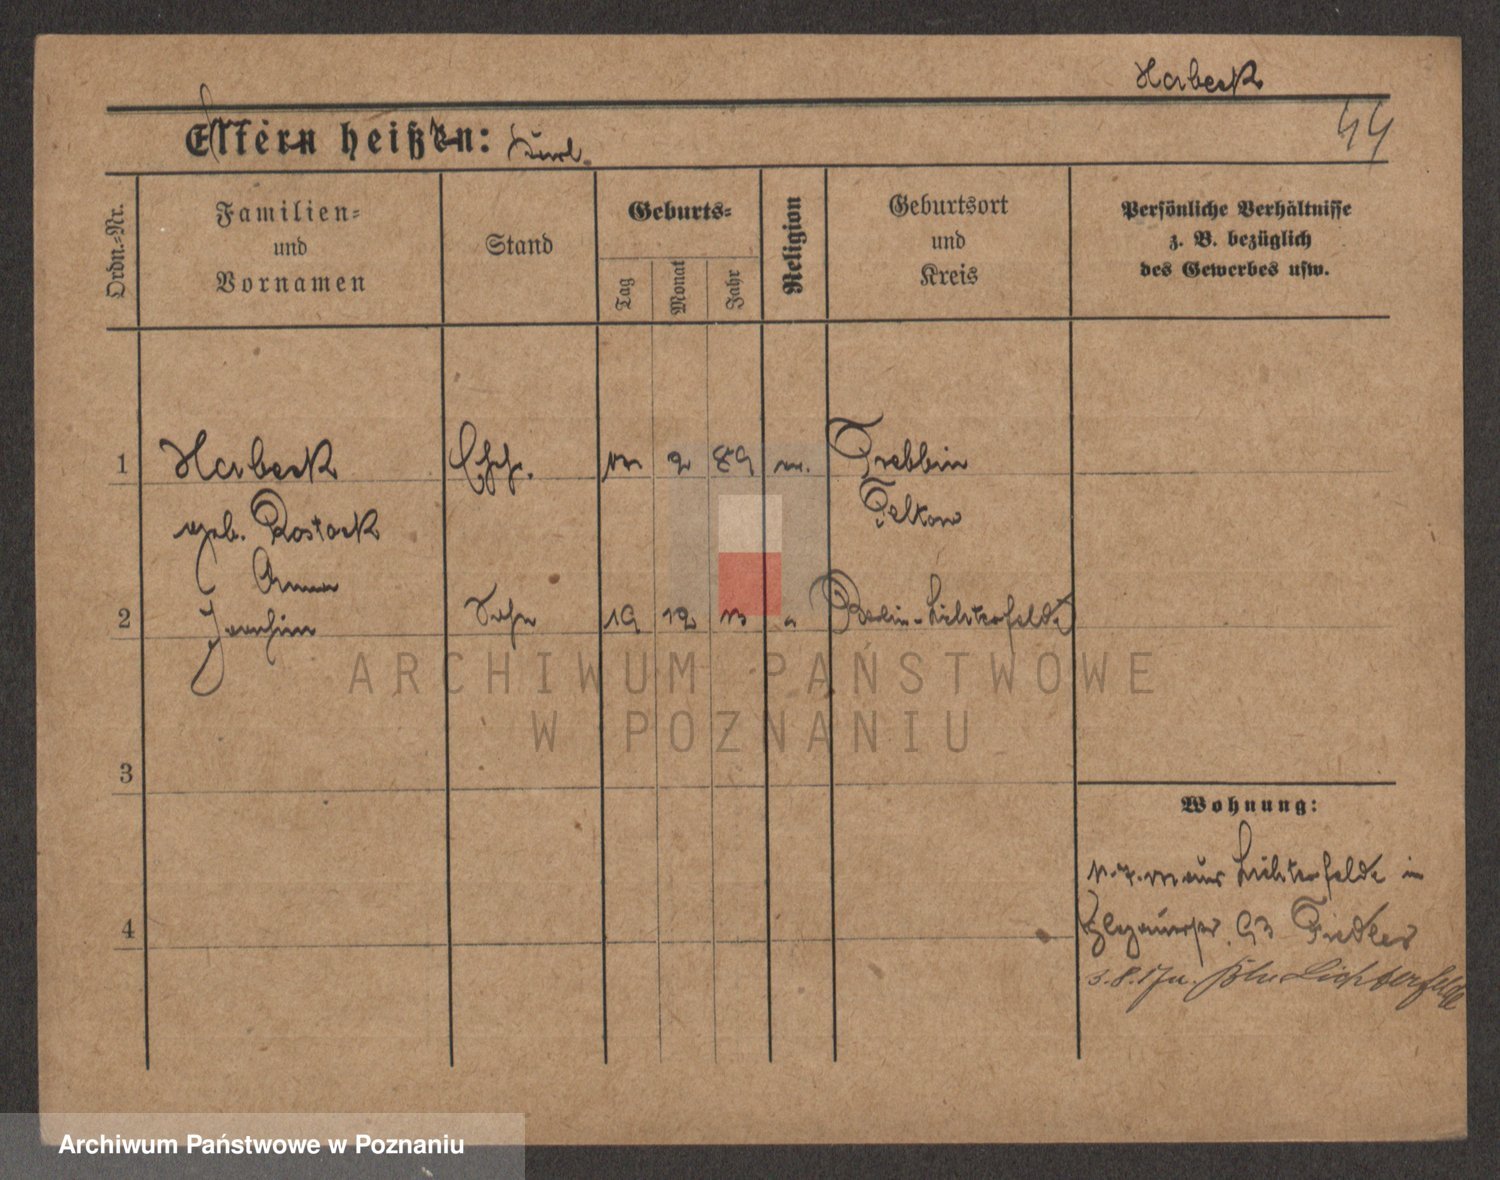 Harbeck
44
Eltern heißen: Karl.
Ordn.-Nr.
Familien-
und
Vornamen
Stand
Geburts-
Tag
Monat
Jahr
Religion
Geburtsort
und
Kreis
Persönliche Verhältnisse
z. B. bezüglich
des Gewerbes usw.
1
Harbeck
2 89
Trebbin
geb. Rostock
Teltow
Anna
2
Joachim
Sohn
19 12 13
"
Berlin-Lichterfelde
ARCHIWUM PAŃSTWOWE
W POZNANIU
3
Wohnung:
aus Lichterfelde in
4
93 Fiedler
Bln Lichterfelde
Archiwum Państwowe w Poznaniu